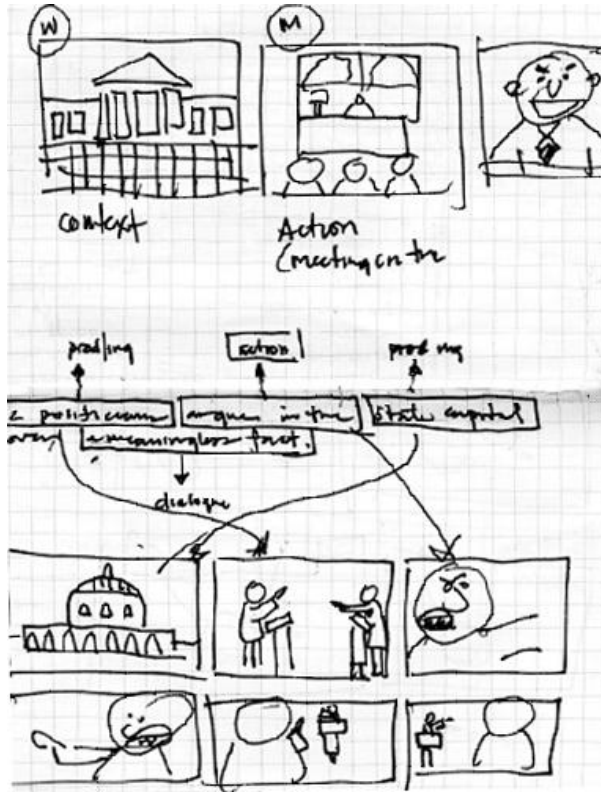 W M
context Action
(meeting in the
action
politicians argue in the state capitol
over a meaningless fact.
dialogue